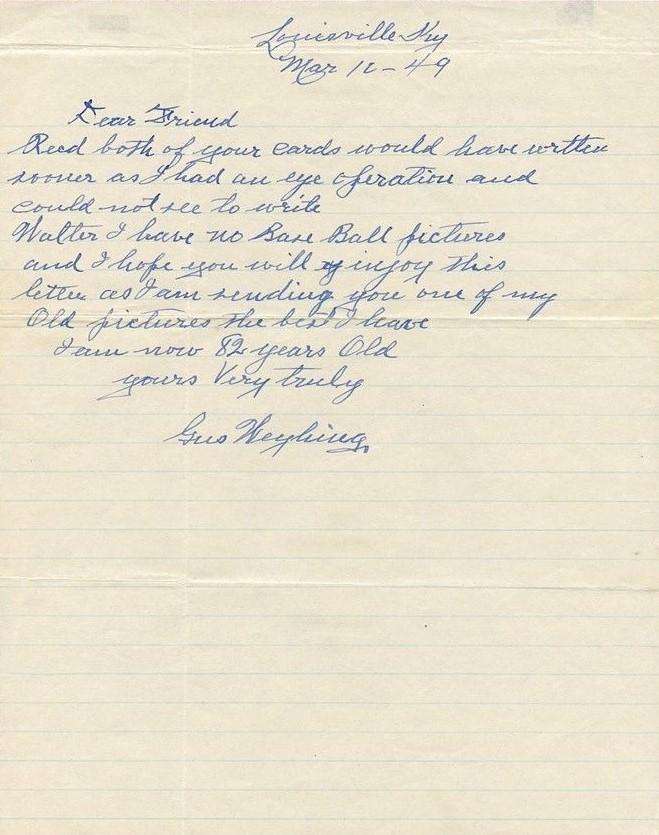 Louisville Ky
Mar 12 - 49
Dear Friend
Recd both of your cards would have written
sooner as I had an eye operation and
could not see to write
Walter I have no Base Ball pictures
and I hope you will injoy this
letter as I am sending you one of my
Old pictures the best I have
I am now 82 years Old
yours Very truly
Gus Weyhing